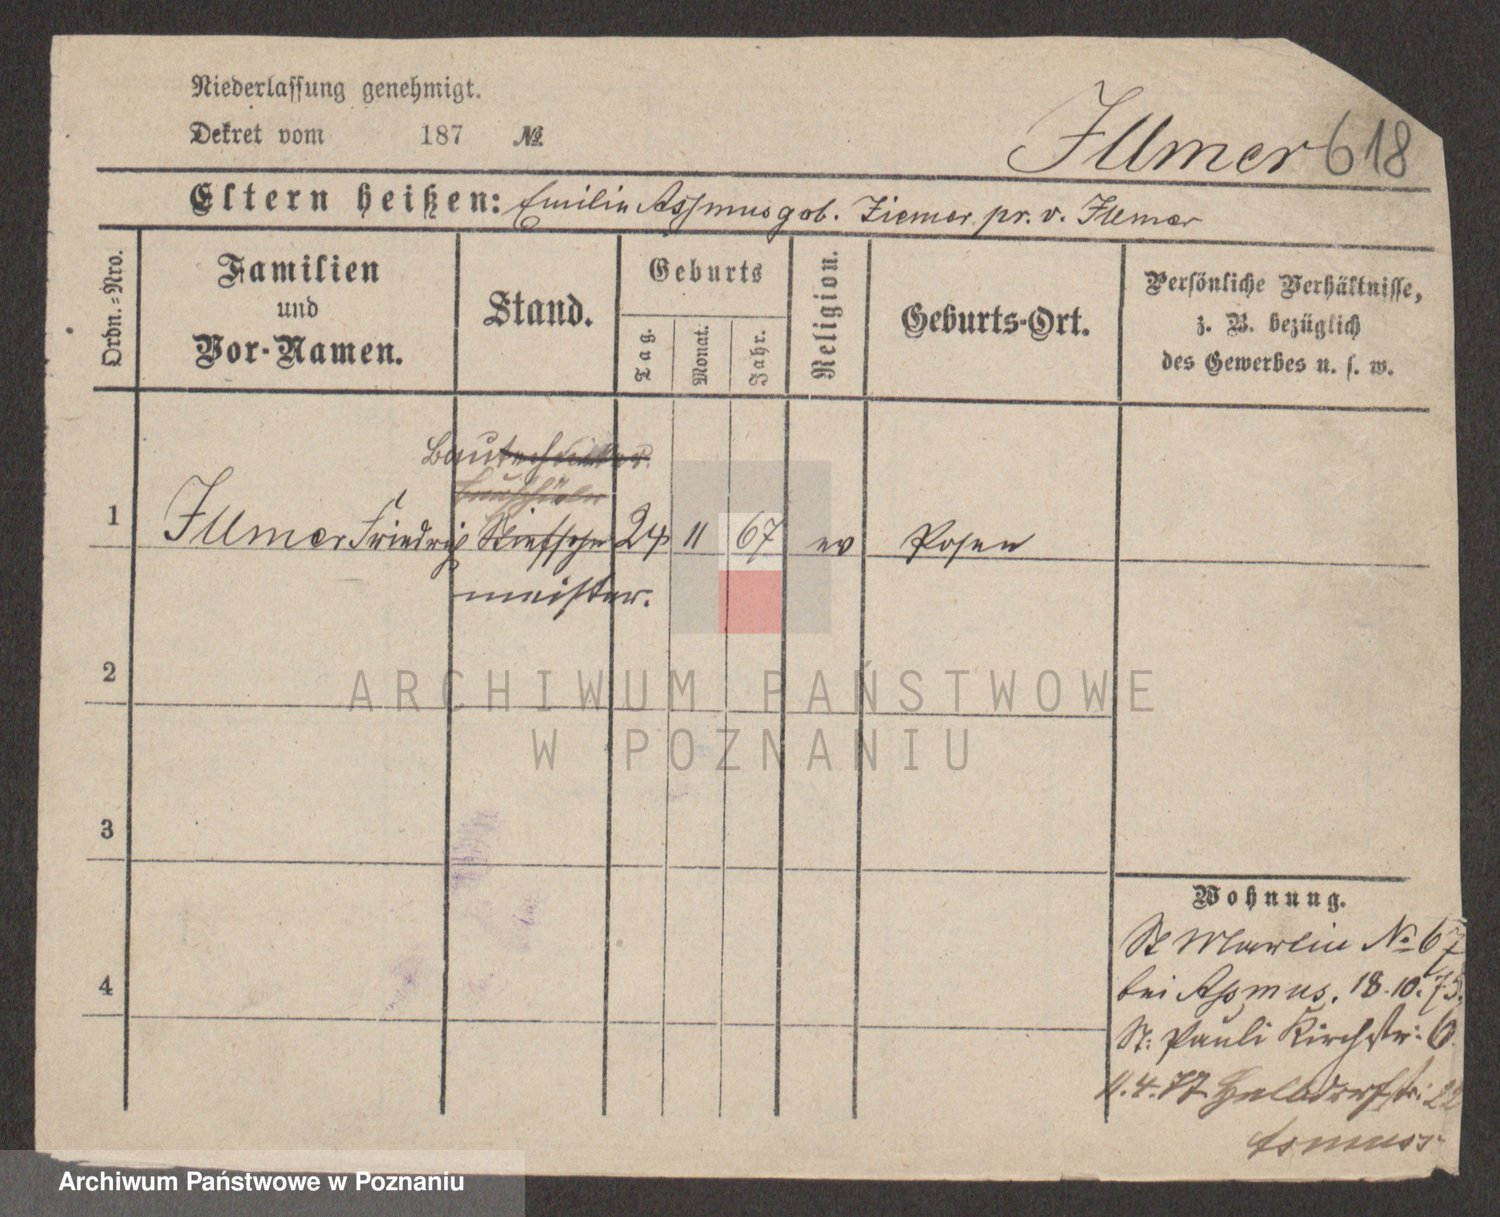 Niederlassung genehmigt.
Dekret vom 187 №
Illmer 618
Eltern heißen: Emilie Assmus geb. Ziemer pr. v. Illmer
Ordn.-Nro.
Familien
und
Vor-Namen.
Stand.
Geburts
Tag.
Monat.
Jahr.
Religion.
Geburts-Ort.
Persönliche Verhältnisse,
z. B. bezüglich
des Gewerbes u. s. w.
Bautechniker
1 Illmer Friedrich Stiefsohn 24 11 67 ev Posen
meister.
2
3
4
ARCHIWUM PAŃSTWOWE
W POZNANIU
Wohnung.
St Martin No 67
bei Assmus. 18.10.75.
St: Pauli Kirchstr: 6.
11.4.77 Halbdorfstr: 22
Asmuss
Archiwum Państwowe w Poznaniu